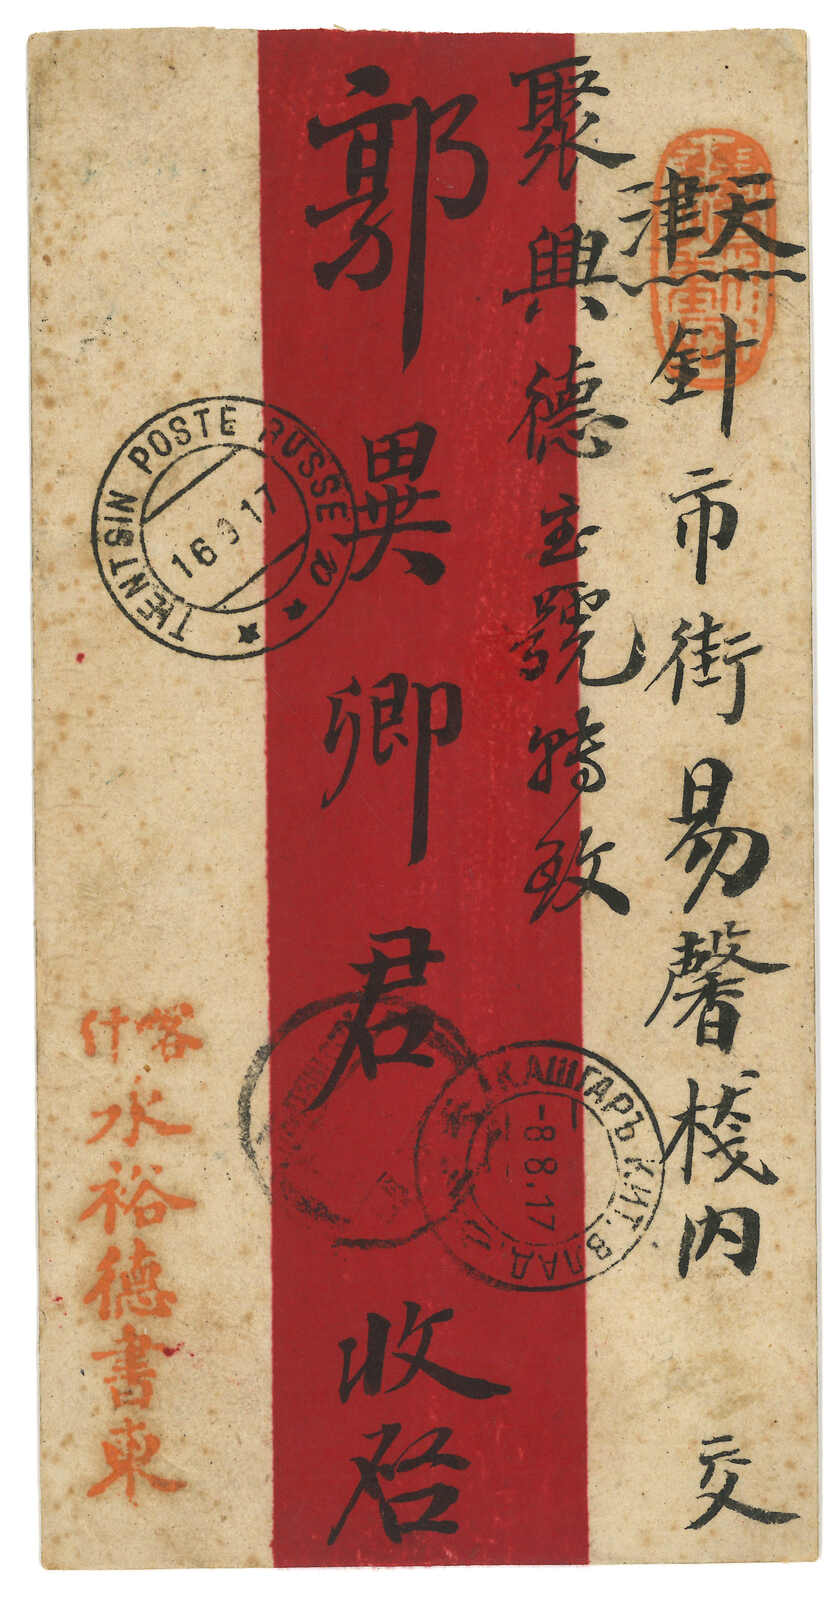 天津針市街易馨栈内 交
聚興德宝號轉致
郭異卿君 收啓
喀什
永裕德書柬
TIENTSIN POSTE RUSSE
16 9 17
КАШГАРЪ КИТ. ВЛАД.
-8 8.17